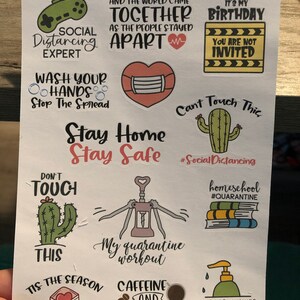 SOCIAL
Distancing
EXPERT
AND THE WORLD CAME
TOGETHER
AS THE PEOPLE STAYED
APART
IT'S MY
BIRTHDAY
YOU ARE NOT
INVITED
WASH YOUR
HANDS
Stop The Spread
Can't Touch This
#SocialDistancing
Stay Home
Stay Safe
DON'T
TOUCH
THIS
My quarantine
workout
homeschool
#QUARANTINE
'TIS THE SEASON
CAFFEINE
AND